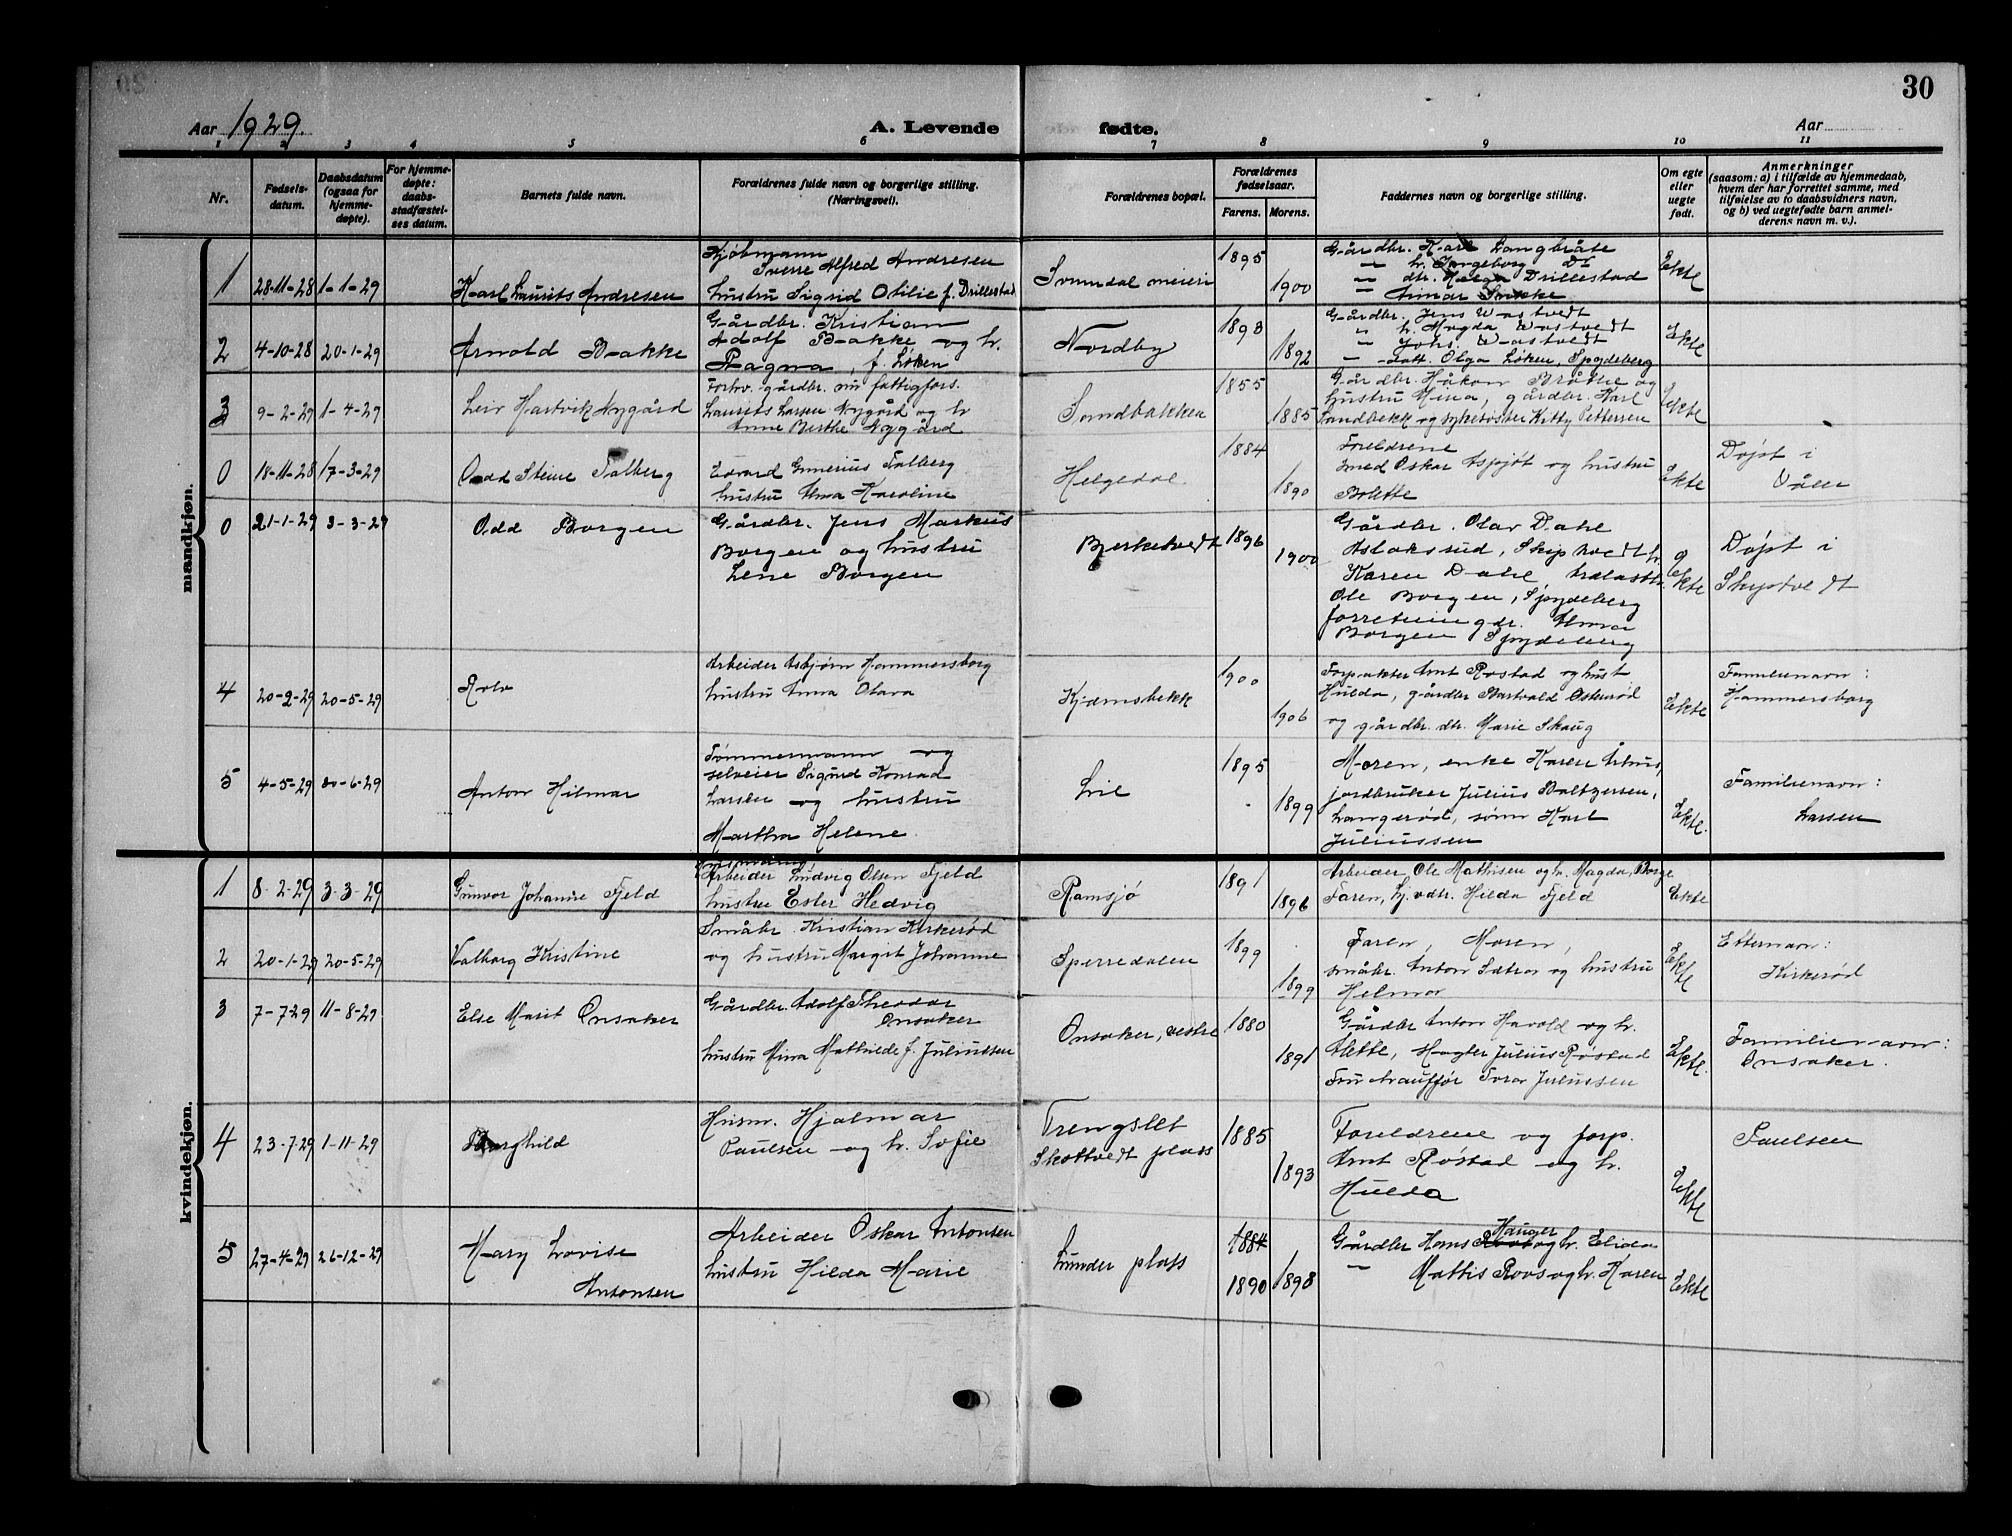 30
Aar 1929.
A. Levende fødte.
Aar
1 2 3 4 5 6 7 8 9 10 11
Nr.
Fødsels-
datum.
Daabsdatum
(ogsaa for
hjemme-
døpte).
For hjemme-
døpte:
daabs-
stadfæstel-
ses datum.
Barnets fulde navn.
Forældrenes fulde navn og borgerlige stilling.
(Næringsvei).
Forældrenes bopæl.
Forældrenes
fødselsaar.
Farens. Morens.
Faddernes navn og borgerlige stilling.
Om egte
eller
uegte
født.
Anmerkninger
(saasom: a) i tilfælde av hjemmedaab,
hvem der har forrettet samme, med
tilføielse av to daabsvidners navn,
og b) ved uegtefødte barn anmel-
derens navn m. v.).
mandkjøn.
1 28-11-28 1-1-29
Karl Laurits Andresen
Kjøbmann
Sverre Alfred Andresen
hustru Sigrid Otilie f. Drillestad
Somdal meieri
1895
1900
Gårdbr. Karl Langbråte
" h. Ingeborg Do
" dtr. Helga Drillestad
" Annar
Ekte
2 4-10-28 20-1-29
Arnold Bakke
Gårdbr. Kristian
Adolf Bakke og h.
Ragna, f. Løken
Nordby
1893
1892
Gårdbr. Jens Wastvedt
" h. Magda Wastvedt
" Johs. Wastvedt
" datt. Olga Løken, Spydeberg
Ekte
3 9-2-29 1-4-29
Leiv Hartvik Nygård
Forhv. gårdbr. nu fattigfors.
Laurits Larsen Nygård og h
Anne Berthe Nygård
Sandbakken
1855
1885
Gårdbr. Håkon Bråthe og
hustru Mina, gårdbr. Karl
Sandbekk og sykesøster Kitty Pettersen
Ekte
0 18-11-28 17-3-29
Odd Steine Talberg
Edvard Gunerius Talberg
hustru Anna Karoline
Helgedal
1884
1890
Foreldrene
smed Oskar Aspjøt og hustru
Bolette
Ekte
Døpt i
Våler
0 21-1-29 3-3-29
Odd Borgen
Gårdbr. Jens Markus
Borgen og hustru
Lene Borgen
Bjerketvedt
1896
1900
Gårdbr. Olav Dahl
Aslaksrud, Skiptvedt h.
Karen Dahl, trelastb.
Ole Borgen, Spydeberg
forretningsdr. Anna
Borgen Spydeberg
Ekte
Døpt i
Skiptvedt
4 20-2-29 20-5-29
Rolv
Arbeider Asbjørn Hammersborg
hustru Anna Olava
Kjærnsbekk
1900
1906
Forpakter Arnt Røstad og hust
Hulda, gårdbr Bartvald Østerød
og gårdbr. dtr. Marie Skaug
Ekte
Familienavn:
Hammersborg
5 4-5-29 30-6-29
Anton Hilmar
Tømmermann og
selveier Sigurd Konrad
Larsen og hustru
Martha Helene.
Lie
1895
1899
Moren, enke Karen Århus,
jordbruker Julius Baltzersen,
Langerød, sønn Karl
Juliussen
Ekte.
Familienavn:
Larsen
kvindekjøn.
1 8-2-29 3-3-29
Gunvor Johanne Fjeld
Arbeider Ludvig Olsen Fjeld
hustru Ester Hedvig
Ramsjø
1891
1896
Arbeider Ole Mathisen og h. Magda, Borge
Faren, hj. v dtr. Hilda Fjeld
Ekte
2 20-1-29 20-5-29
Valborg Kristine
Småbr. Kristian Kirkerød
og hustru Margit Johanne
Sperredalen
1899
1899
Faren, Moren,
småbr. Anton Sætra og hustru
Helma
Ekte
Etternavn:
Kirkerød
3 7-7-29 11-8-29
Else Marit Onsaker
Gårdbr. Adolf Theodor
Onsaker
hustru Mina Mathilde f. Juliussen
Onsaker, vestre
1880
1891
Gårdbr Anton Harald og h.
Alette, Magter Julius Røstad
Fru chaufför Tora Juliussen
Ekte.
Familienavn:
Onsaker.
4 23-7-29 1-11-29
Borghild
Husm. Hjalmar
Paulsen og h. Sofie
Trengslet
Skottvedt plass
1885
1893
Foreldrene og forp.
Arnt Røstad og h.
Hulda
Ekte
Paulsen
5 27-4-29 26-12-29
Mary Lovise
Antonsen
Arbeider Oskar Antonsen
hustru Hilda Marie
Lunder plass
1884
1890 1898
Hauger
Gårdbr Hans og h. Elida
" Mattis Roos og h. Karen
Ekte